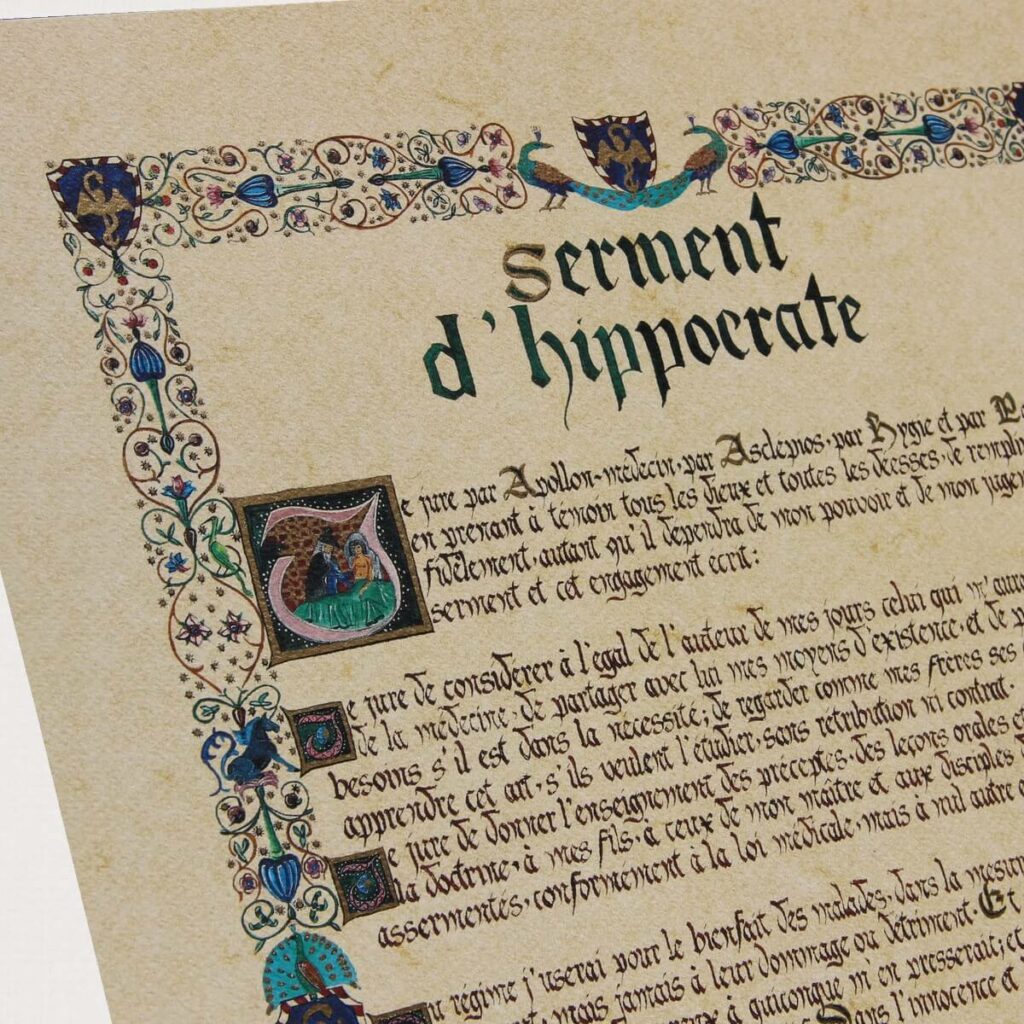 Serment
d'hippocrate
Je jure par Apollon-médecin, par Asclepios, par Hygie et par
en prenant à témoin tous les dieux et toutes les déesses, de
fidèlement, autant qu'il dependra de mon pouvoir et de mon
serment et cet engagement écrit:
Je jure de considerer à l'egal de l'auteur de mes jours celui qui
de la medecine, de partager avec lui mes moyens d'existence, et de
besoins s'il est dans la nécessité; de regarder comme mes frères ses
apprendre cet art, s'ils veulent l'étudier, sans retribution ni contrat.
Je jure de donner l'enseignement des préceptes, des leçons orales et
la doctrine, à mes fils, a ceux de mon maître et aux disciples
assermentés, conformement à la loi medicale, mais à nul autre
régime j'userai pour le bienfait des malades, dans la
mais jamais à leur dommage ou détriment. Et
à quiconque m'en presserait; et
Dans l'innocence et